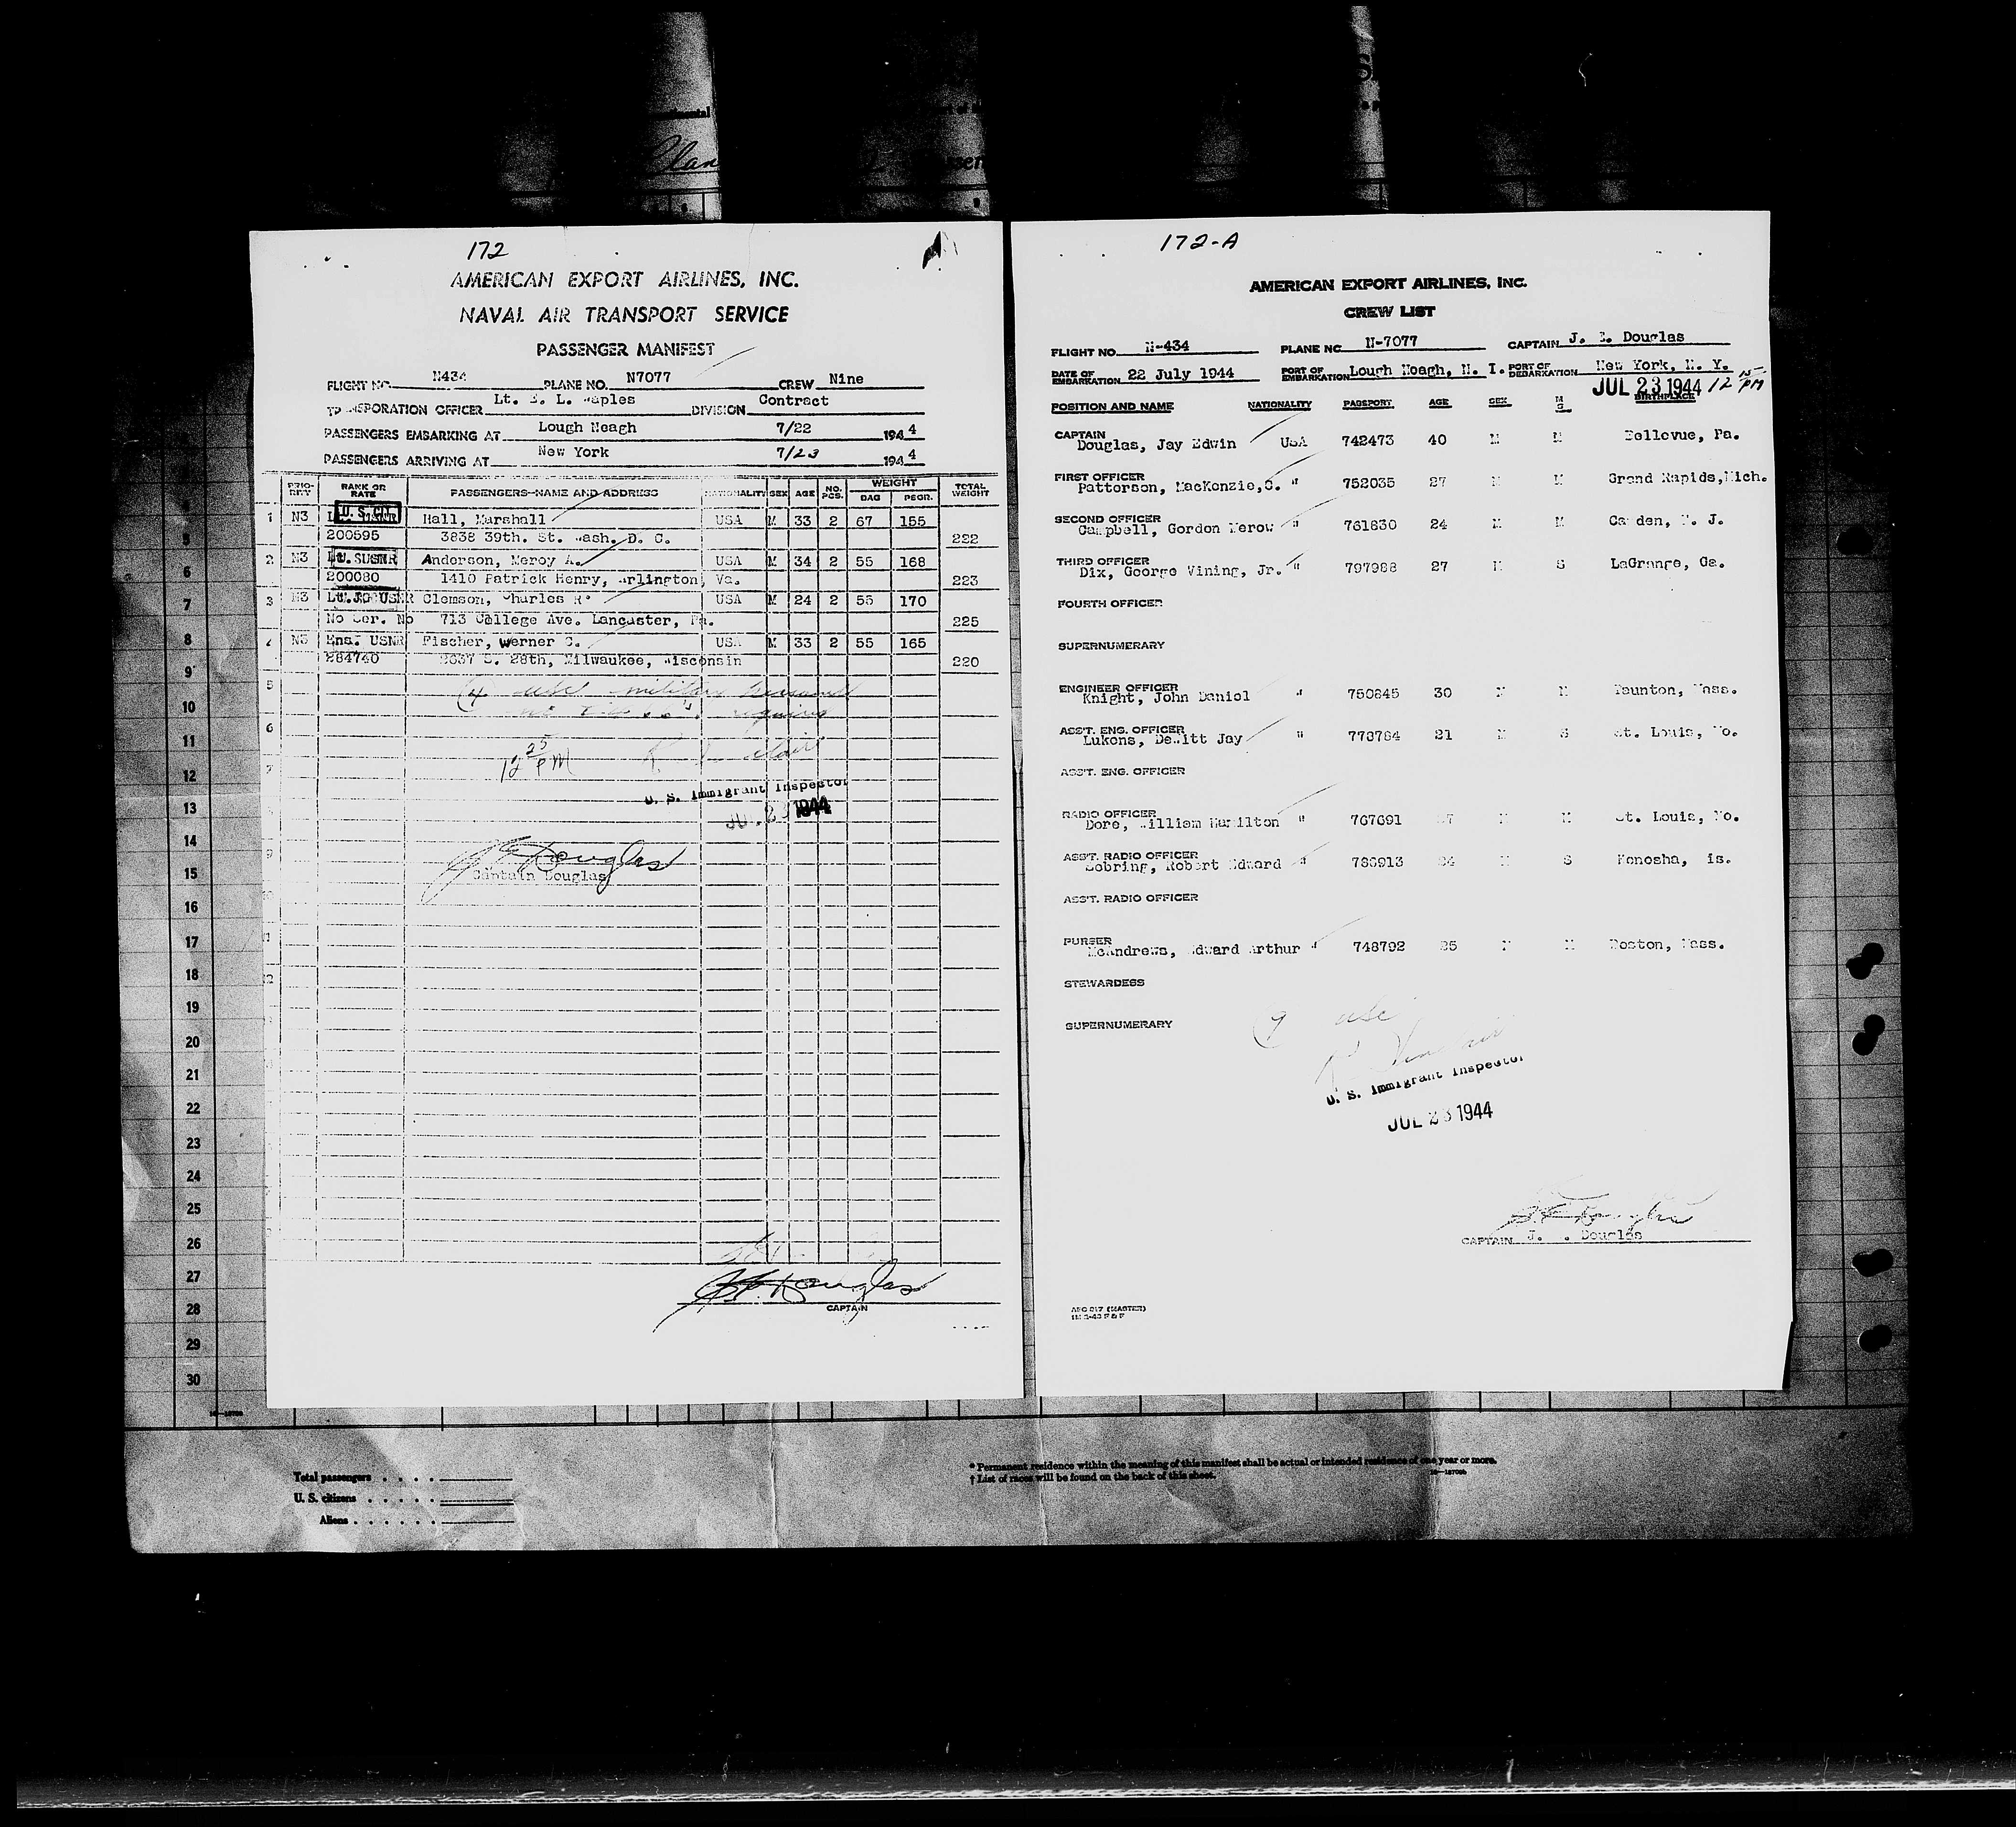 172
AMERICAN EXPORT AIRLINES, INC.
NAVAL AIR TRANSPORT SERVICE
PASSENGER MANIFEST
FLIGHT NO. N434 PLANE NO. N7077 CREW Nine
TRANSPORATION OFFICER Lt. E. L. Maples DIVISION Contract
PASSENGERS EMBARKING AT Lough Neagh 7/22 1944
PASSENGERS ARRIVING AT New York 7/23 1944
PRIO-RITY RANK OR RATE PASSENGERS—NAME AND ADDRESS NATIONALITY SEX AGE NO. PCS. WEIGHT BAG PSGR. TOTAL WEIGHT
U. S. CIT.
1 N3 Hall, Marshall USA M 33 2 67 155
200595 3838 39th. St. Wash. D. C. 222
2 N3 Anderson, Meroy A. USA M 34 2 55 168
200080 1410 Patrick Henry, Arlington, Va. 223
3 N3 Lt. JG USNR Clemson, Charles R. USA M 24 2 55 170
No Ser. No 713 College Ave. Lancaster, Pa. 225
4 N3 Ens. USNR Fischer, Werner C. USA M 33 2 55 165
284740 S. 28th, Milwaukee, Wisconsin 220
5
(4) USC military personnel
6
12 25 PM
U. S. Immigrant Inspector
JUL 23 1944
J E Douglas
Captain Douglas
J. E. Douglas
CAPTAIN
172-A
AMERICAN EXPORT AIRLINES, INC.
CREW LIST
FLIGHT NO. N-434 PLANE NO N-7077 CAPTAIN J. E. Douglas
DATE OF EMBARKATION 22 July 1944 PORT OF EMBARKATION Lough Neagh, N. I. PORT OF DEBARKATION New York, N. Y.
JUL 23 1944 12 15 PM
POSITION AND NAME NATIONALITY PASSPORT AGE SEX M S BIRTHPLACE
CAPTAIN
Douglas, Jay Edwin USA 742473 40 M M Bellevue, Pa.
FIRST OFFICER
Patterson, MacKenzie, G. " 752035 27 M M Grand Rapids, Mich.
SECOND OFFICER
Campbell, Gordon Merow " 761830 24 M M Camden, N. J.
THIRD OFFICER
Dix, George Vining, Jr. " 797988 27 M S LaGrange, Ga.
FOURTH OFFICER
SUPERNUMERARY
ENGINEER OFFICER
Knight, John Daniel " 750845 30 M M Taunton, Mass.
ASS'T. ENG. OFFICER
Lukens, Dewitt Jay " 773784 21 M S St. Louis, Mo.
ASS'T. ENG. OFFICER
RADIO OFFICER
Dore, William Hamilton " 767691 M M St. Louis, Mo.
ASS'T. RADIO OFFICER
Robert Edward " 786913 24 M S Kenosha, is.
ASS'T. RADIO OFFICER
PURSER
McAndrews, Edward Arthur " 748792 25 M M Boston, Mass.
STEWARDESS
SUPERNUMERARY
(9) USC
U. S. Immigrant Inspector
JUL 23 1944
J. E. Douglas
CAPTAIN J. . Douglas
5
6
7
8
9
10
11
12
13
14
15
16
17
18
19
20
21
22
23
24
25
26
27
28
29
30
Total passengers . . . .
U. S. citizens . . . . .
Aliens . . . . . .
* Permanent residence within the meaning of this manifest shall be actual or intended residence of one year or more.
† List of races will be found on the back of this sheet.